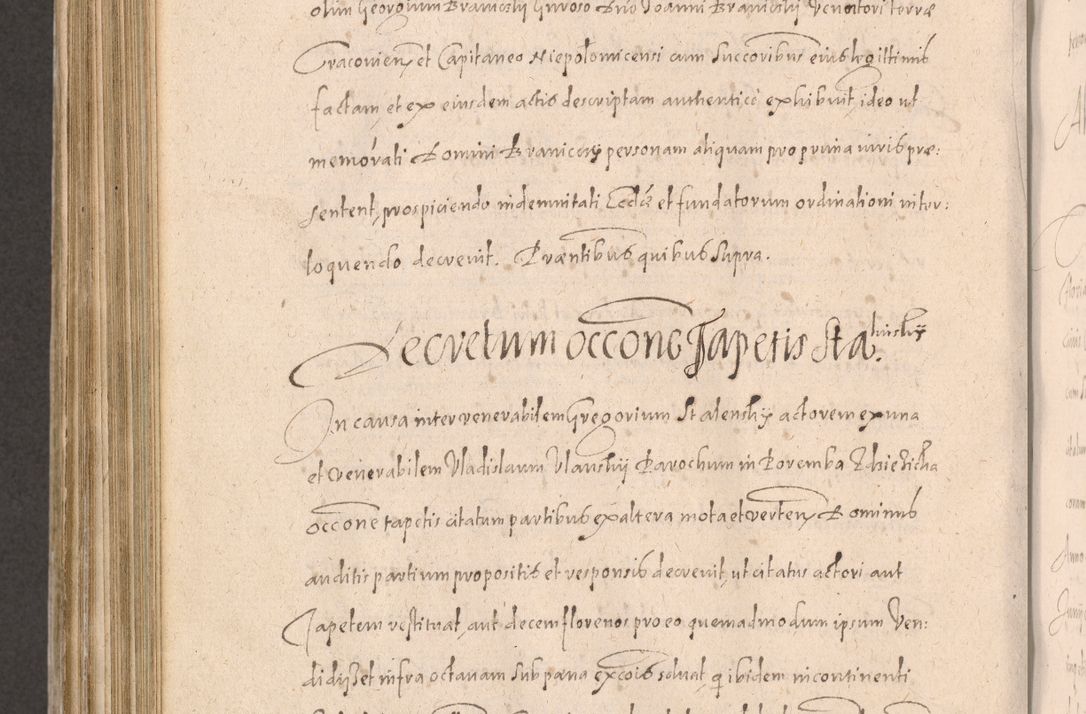 olim Georgium Braniczky Generoso Dno Joanni Branicky Venatori terræ
Cracovien, et Capitaneo Niepołomicensi cum Succoribus eius legittimis
factam, et ex eiusdem actis descriptam authenticè exhibuit, ideo ut
memorati Domini Braniccÿ personam aliquam pro prima viris præ:
sentent, prospiciendo indemnitati Eccliæ et fundatorum ordinationi inter:
loquendo decrevit. Præntibus quibus Supra.
Decretum occone Tapetis Sta.
In causa inter venerabilem Gregorium Stalenskÿ actorem ex una
et Venerabilem Vladislaum Ulanskÿ Parochum in Poremba
occone tapetis citatum partibus ex altera mota et verten, Dominus
auditis partium propositis et responsis decrevit, ut citatus actori aut
Tapetem restituat, aut decem florenos pro eo quemadmodum ipsum Ven:
didisset infra octavam sub pæna excois solvat, ibidem incontinenti